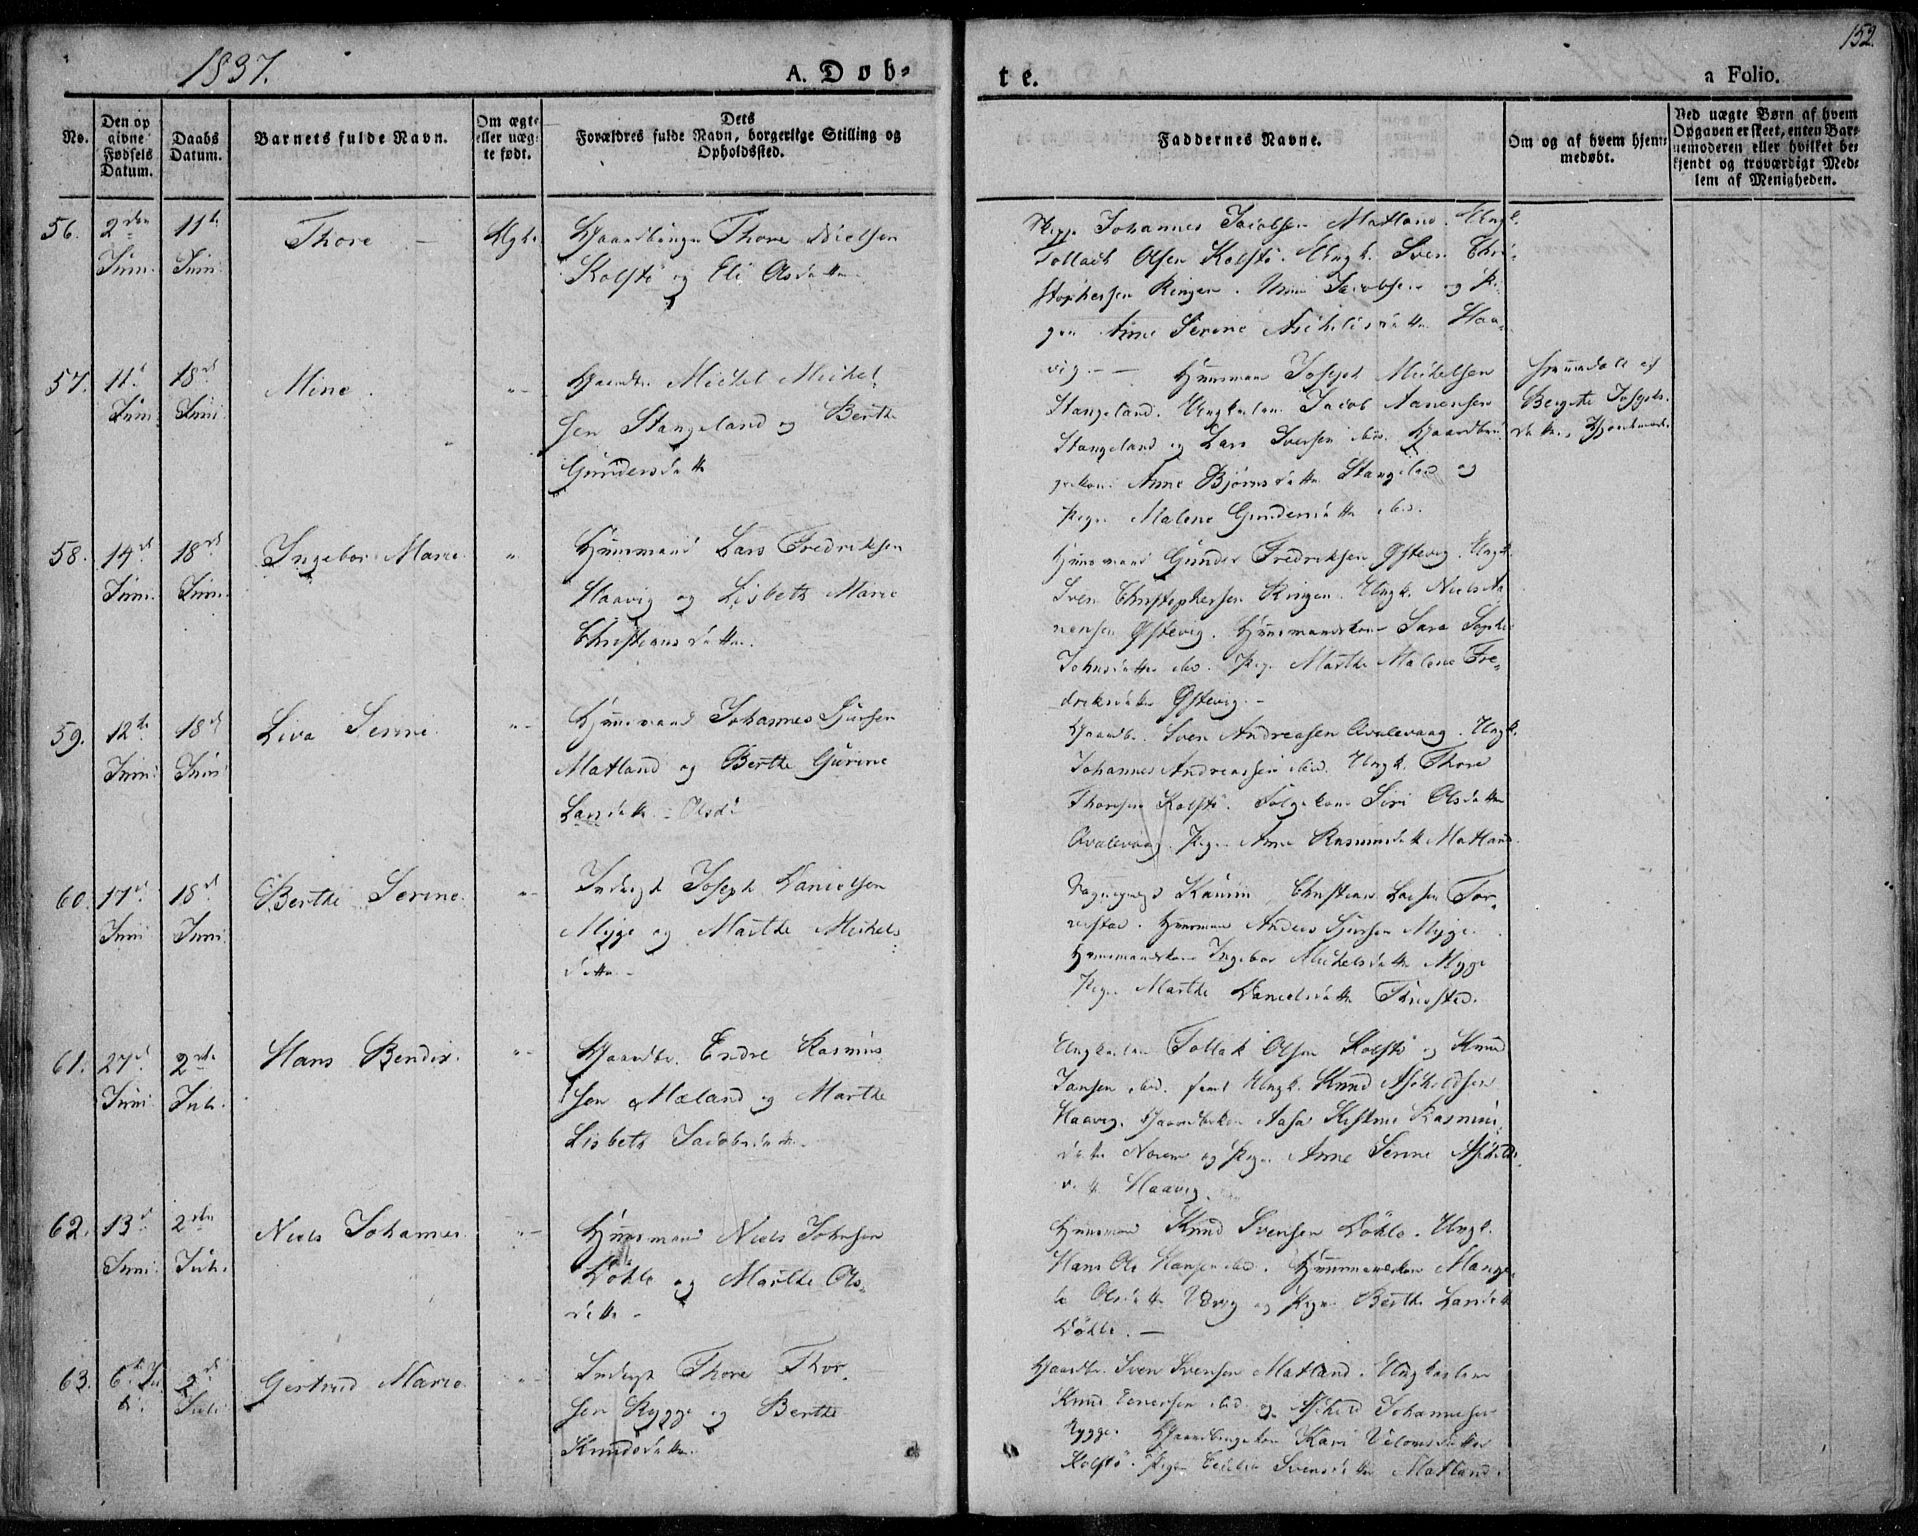 1837.
A. Døb-
te.
a Folio.
152.
No.
Den op
givne
Fødsels
Datum.
Daabs
Datum.
Barnets fulde Navn.
Om ægte
eller uæg-
te født.
Dets
Forældres fulde Navn, borgerlige Stilling og
Opholdssted.
Faddernes Navne.
Om og af hvem hjem-
medøbt.
Ved uægte Børn af hvem
Opgaven er skeet, enten Bar-
nemoderen eller hvilket be-
kjendt og troværdigt Med-
lem af Menigheden.
56.
2den
Juni.
11te
Juni.
Thore
Thore Nielsen
Kolstö og Eli Olsdatter
Johannes Jacobsen Matland. Ungk.
Tollack Olsen Kolstö. Ungk. Sven Chri-
stophersen Ringen. Jacobsen og Pi-
gen Anne Serine Haa-
vig.
57.
11t
Juni.
18de
Juni.
Mine.
Gaardbr. Michel Michel-
sen Stangeland og Berthe
Gundersdatter
Huusmand Joseph Michelsen
Stangeland. Ungkarlen Jacob Aanensen
Stangeland og Lars Iversen ibid. Gaardbru-
gerkone Anne Bjørnsdatter Stangeland og
Pigen Malene Gundersdatter ibid.
Bergete Josephs-
datter
58.
14de
Juni.
18de
Juni.
Ingebor Marie.
Huusmand Lars Fredriksen
Haavig og Lisbeth Marie
Christiansdatter.
Huusmand Gunder Fredriksen Østevig. Ungk.
Sven Christophersen Ringen. Ungk. Niels Aa-
nensen Østevig. Huusmandskone Sara Sophie
Johnsdatter ibid. Pige Marthe Malene Fre-
driksdatter Østevig.
59.
12te
Juni.
18de
Juni
Liva Serine.
Huusmand Johannes Sjursen
Matland og Berthe Gurine
Larsdatter. Olsd:
Gaardbr. Sven Andreasen Qvalevaag. Ungk.
Johannes Andreassen ibid. Ungk. Thore
Thoresen Kolstö. Siri Olsdatter
Qvalevaag. Pige Anne Rasmusdatter Matland.
60.
17de
Juni
18de
Juni.
Berthe Serine.
Inderst Joseph Danielsen
Mygge og Marthe Michels-
datter.
Christian Larsen Tor-
restad. Huusmand Anders Sjursen Mygge.
Huusmandskone Ingebor Michelsdatter Mygge
Pigen Marthe Danielsdatter
61.
27de
Juni.
2den
Juli.
Hans Bendix.
Gaardbr. Endre Rasmus-
sen Mæland og Marthe
Lisbeth Jacobsdatter.
Ungkarlen Tollak Olsen Kolstö og Knud
Jansen ibid. samt Ungk. Knud Askeldsen
Haavig. Aasa Kistine Rasmus-
datter Norem og Pigen Anne Serine Askelds-
datter Haavig.
62.
13de
Juni.
2den
Juli.
Niels Johannes.
Huusmand Niels Johnsen
Døhle og Marthe Ols-
datter.
Huusmand Knud Svensen Døhle. Ungk.
Hans Ole Hansen ibid. Huusmandskone
Olsdatter og Pigen Berthe Larsdatter
Døhle.
63.
6te Ju-
li.
2den
Juli.
Gertrud Marie.
Inderst Thore Thor-
sen Rygge og Berthe
Knudsdatter.
Gaardbr. Sven Svensen Matland. Ungkarlen
Knud Enersen ibid. og Askild Johannesen
Rygge. Gaardbrugerkone Kari
Kolstö. Pigen Cecilia Svensdatter Matland.